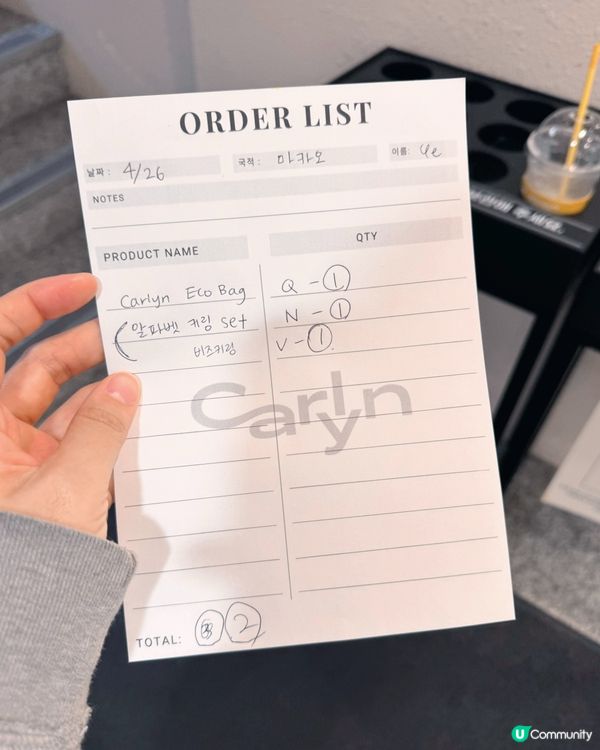 ORDER LIST
날짜: 4/26 국적: 마카오 이름: Ye
NOTES
PRODUCT NAME QTY
Carlyn Eco Bag Q - ①
알파벳 키링 set N - ①
비즈키링 V - ①
Carlyn
TOTAL: ②
U Community